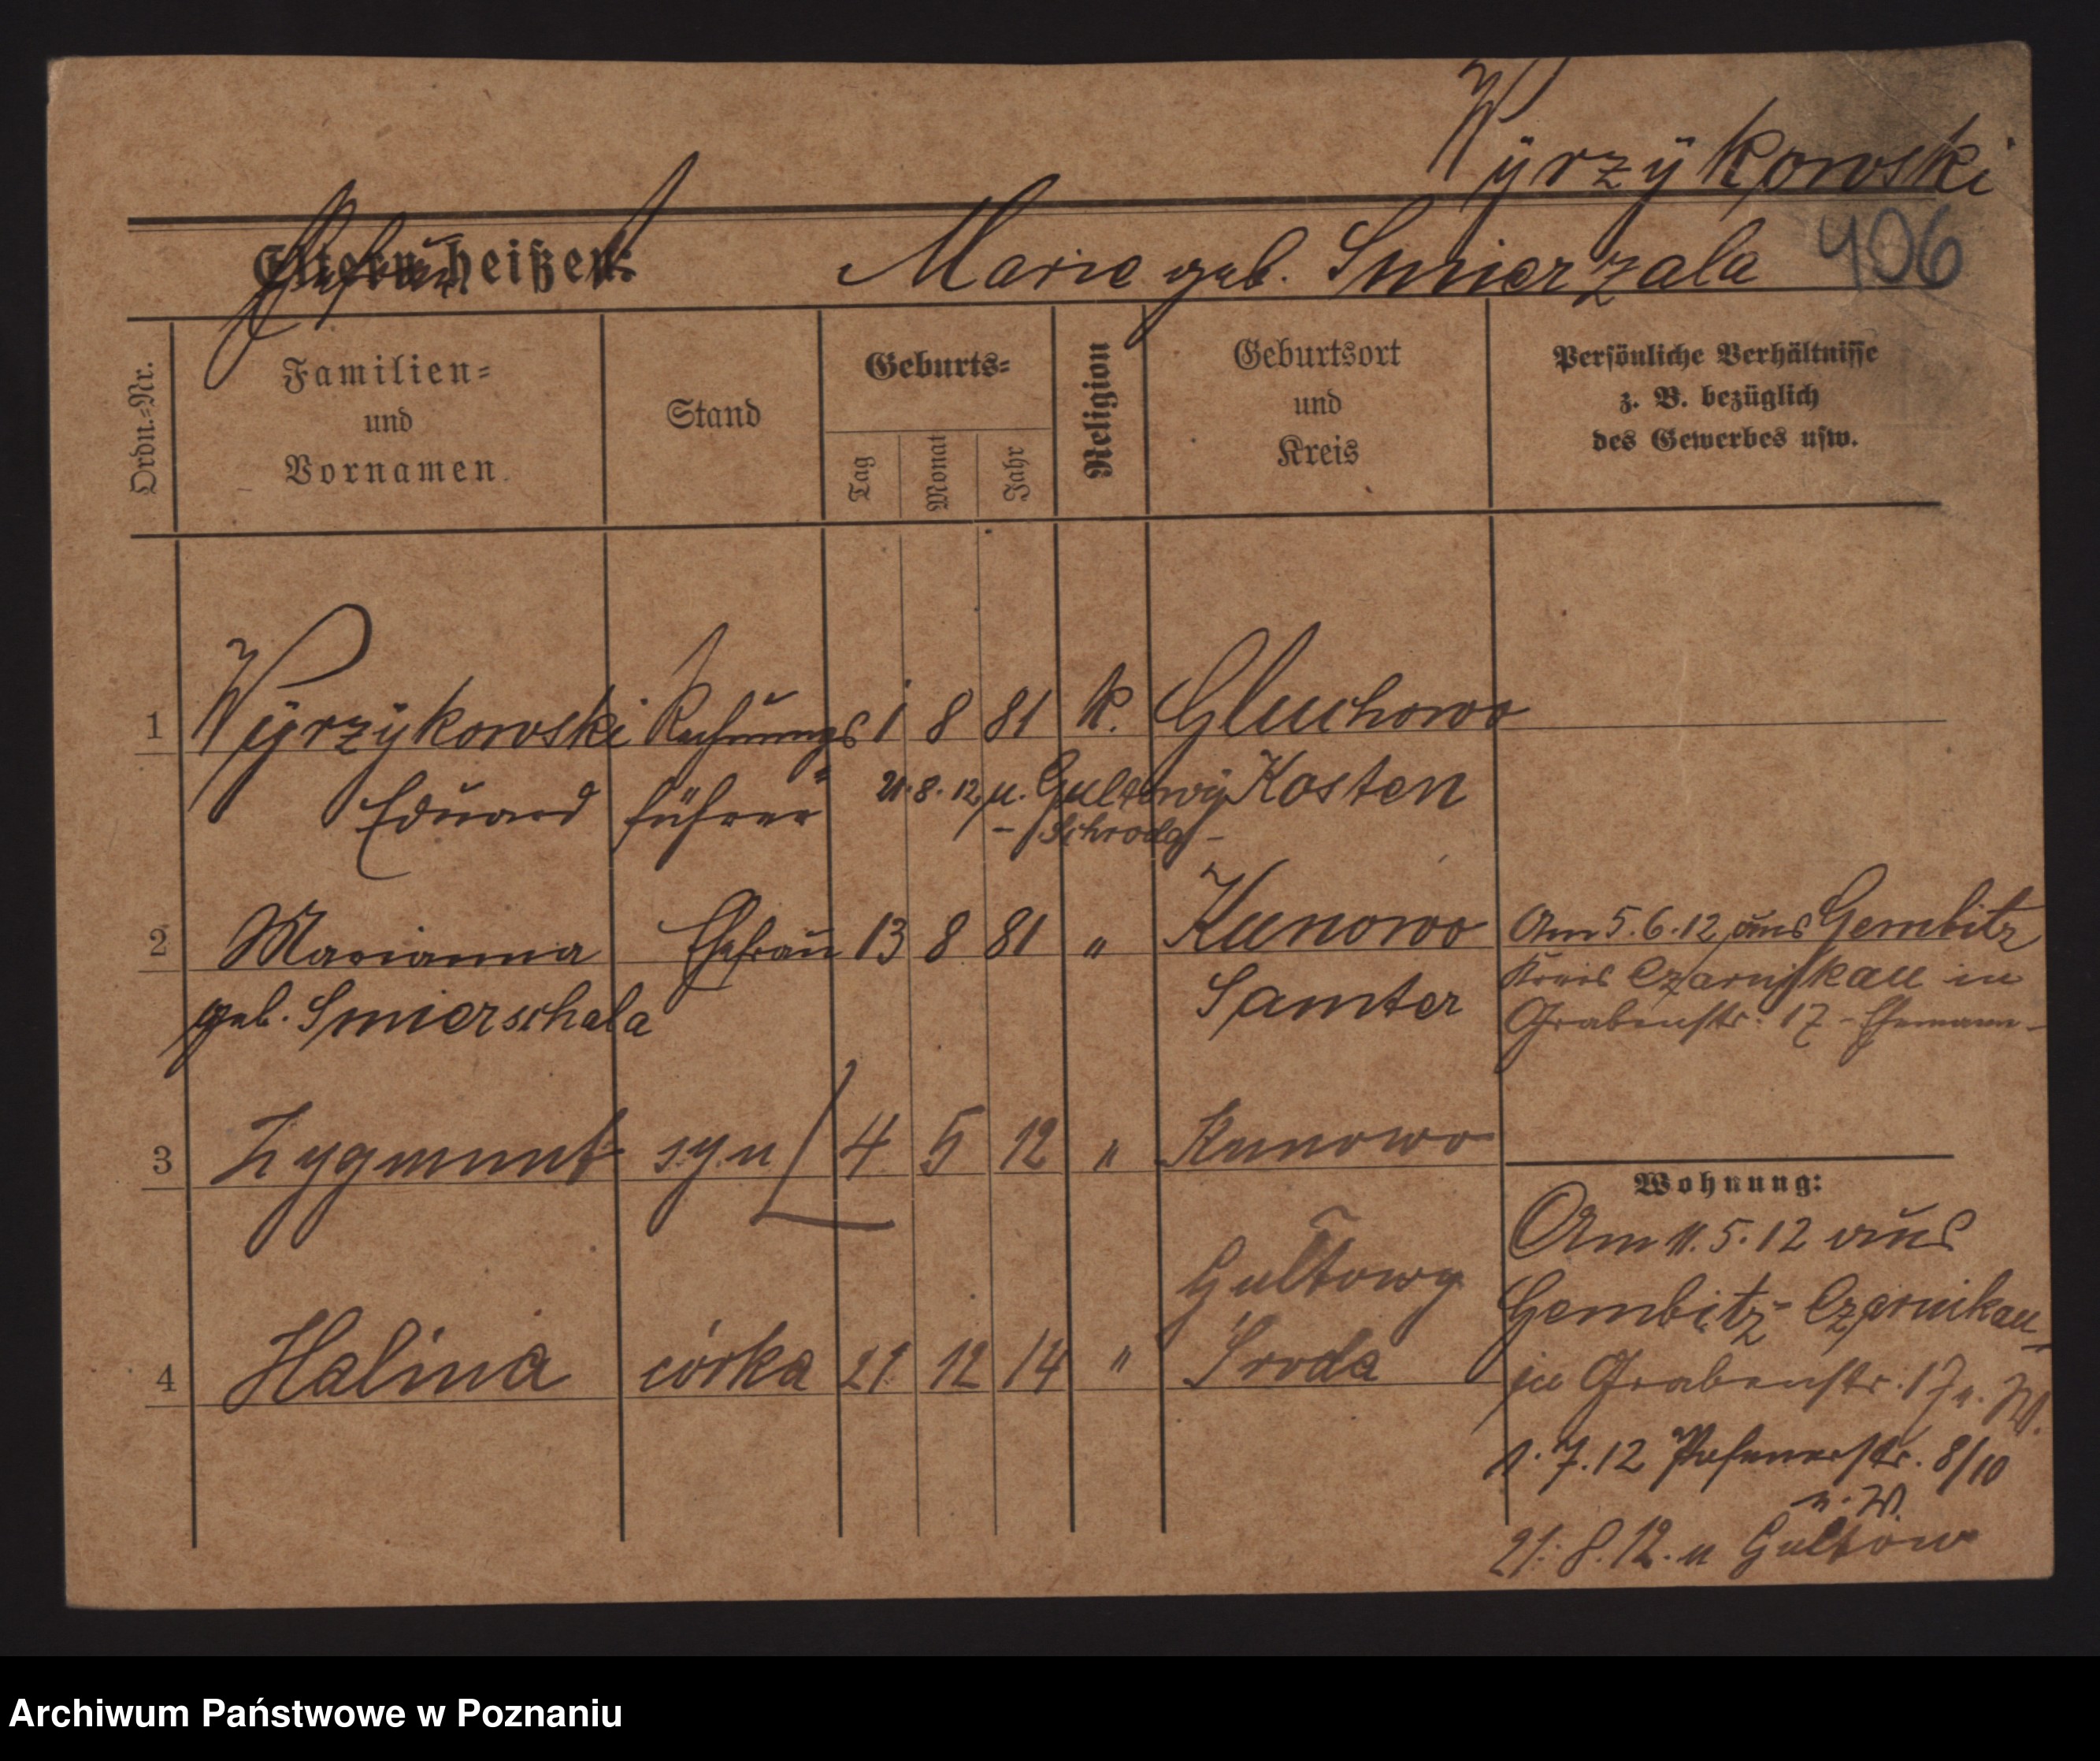 Wÿrzÿkowski
Eltern heißen: Ehefrau Marie geb. Smierzala 406
Ordn.=Nr.
Familien=
und
Vornamen.
Stand
Geburts=
Tag
Monat
Jahr
Religion
Geburtsort
und
Kreis
Persönliche Verhältnisse
z. B. bezüglich
des Gewerbes usw.
1 Wÿrzÿkowski Rechnungs 1 8 81 k. Gluchowo
Eduard führer 21.8.12 u. Gultowÿ Kosten
- Schroda -
2 Marianna Ehefrau 13 8 81 " Kunowo
geb. Smierschala Samter
Am 5.6.12 aus Gembitz
Kreis Czarnikau in
Grabenstr. 17 - Ehemann -
3 Zygmunt syn 4 5 12 " Kunowo
4 Halina córka 21 12 14 " Gułtowy
Środa
Wohnung:
Am 11.5.12 aus
Gembitz - Czarnikau -
in Grabenstr. 17 n. W.
1.7.12 Posenerstr. 8/10
n. W.
21.8.12. n Gultow
Archiwum Państwowe w Poznaniu